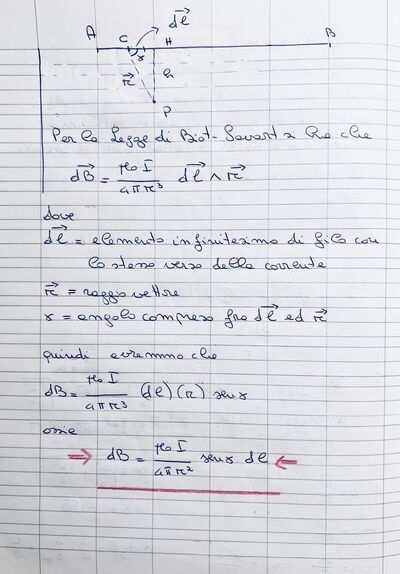 dl
A C H B
γ
r h
P
Per la Legge di Biot-Savart si ha che
dB = μ₀ I / 4πr³ dl ∧ r
dove
dl = elemento infinitesimo di filo con
lo stesso verso della corrente
r = raggio vettore
γ = angolo compreso fra dl ed r
quindi avremmo che
dB = μ₀ I / 4πr³ (dl)(r) senγ
ossia
⇒ dB = μ₀ I / 4πr² senγ dl ⇐